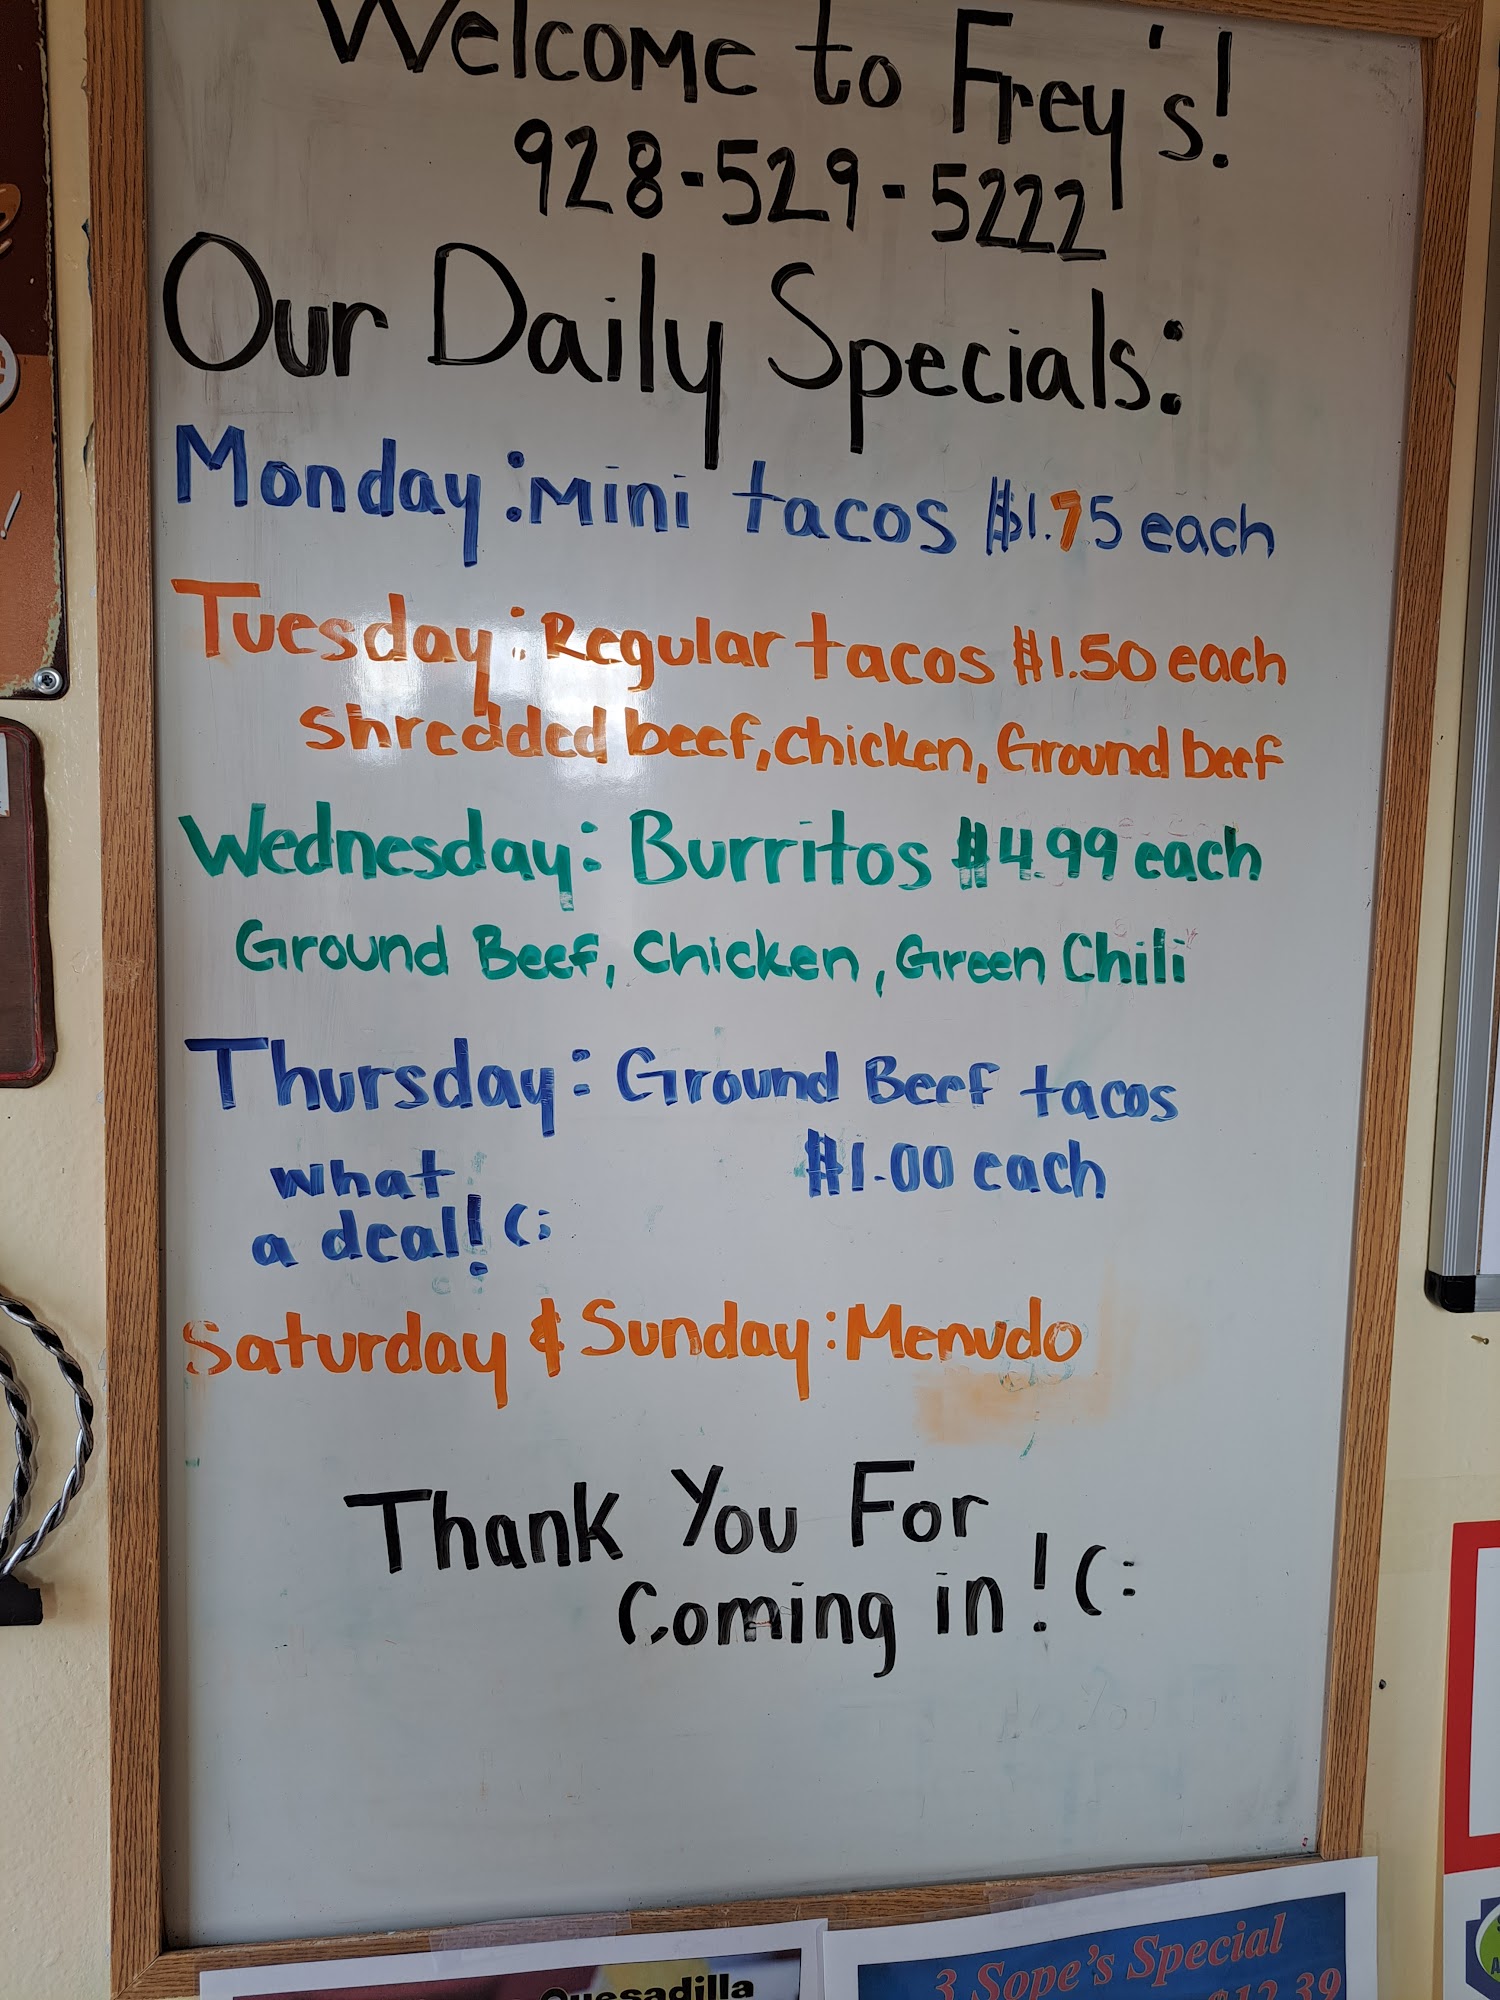 Welcome to Frey's!
928-529-5222
Our Daily Specials:
Monday: Mini tacos $1.75 each
Tuesday: Regular tacos $1.50 each
Shredded beef, Chicken, Ground beef
Wednesday: Burritos $4.99 each
Ground Beef, Chicken, Green Chili
Thursday: Ground Beef tacos
$1.00 each
what
a deal! (:
Saturday & Sunday: Menudo
Thank You For
Coming in! (:
Quesadilla
3 Sope's Special
$12.39